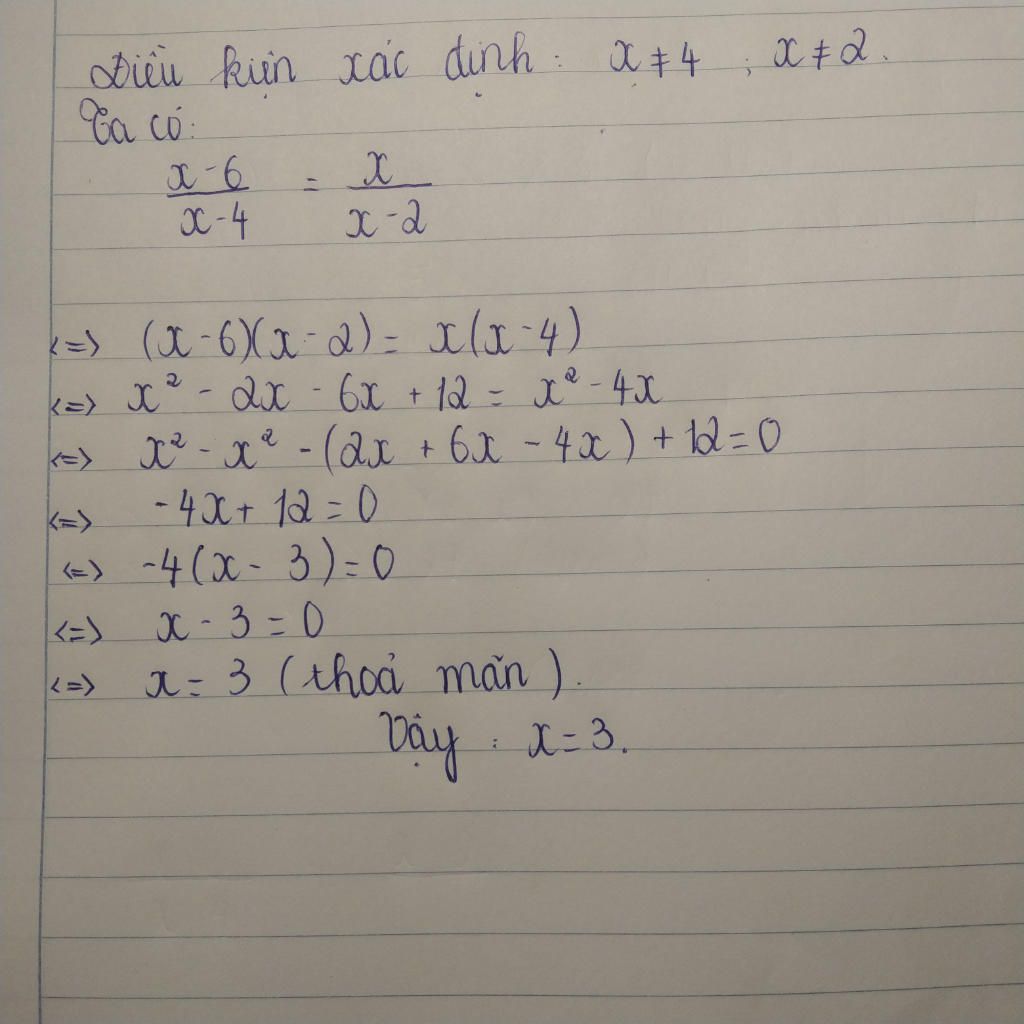 Điều kiện xác định : x ≠ 4 ; x ≠ 2.
Ta có:
x - 6 / x - 4 = x / x - 2
<=> (x - 6)(x - 2) = x(x - 4)
<=> x² - 2x - 6x + 12 = x² - 4x
<=> x² - x² - (2x + 6x - 4x) + 12 = 0
<=> -4x + 12 = 0
<=> -4(x - 3) = 0
<=> x - 3 = 0
<=> x = 3 (thoả mãn).
Vậy : x = 3.